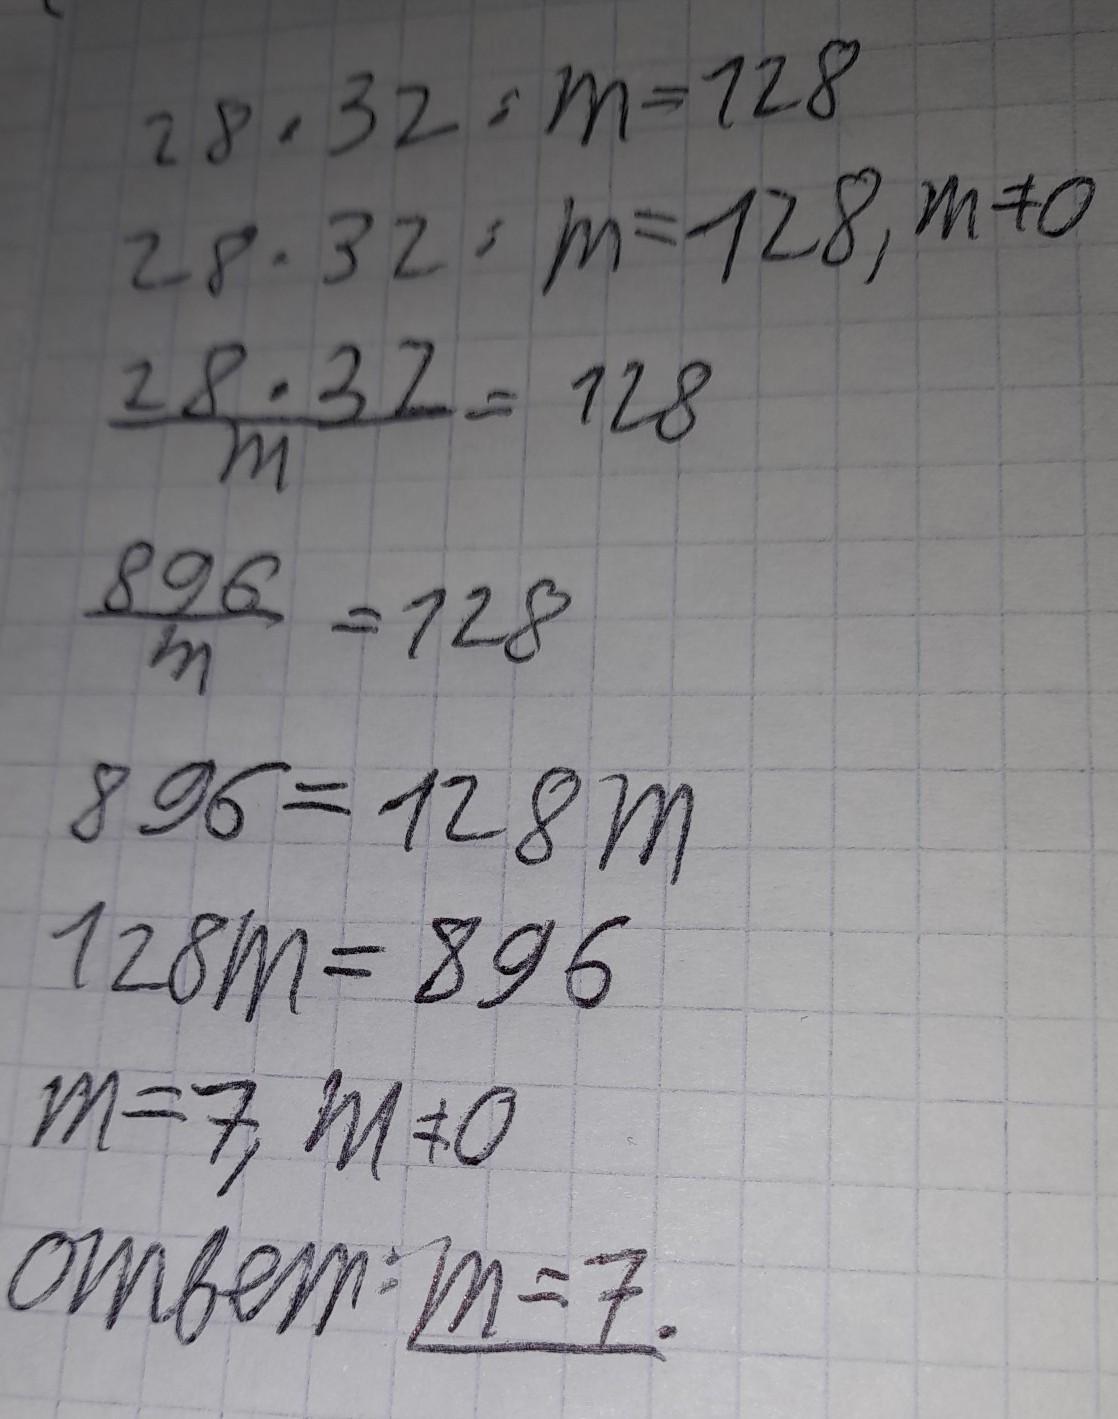 28 · 32 : m = 128
28 · 32 : m = 128, m ≠ 0
28 · 32 / m = 128
896 / m = 128
896 = 128m
128m = 896
m = 7, m ≠ 0
ответ: m = 7.